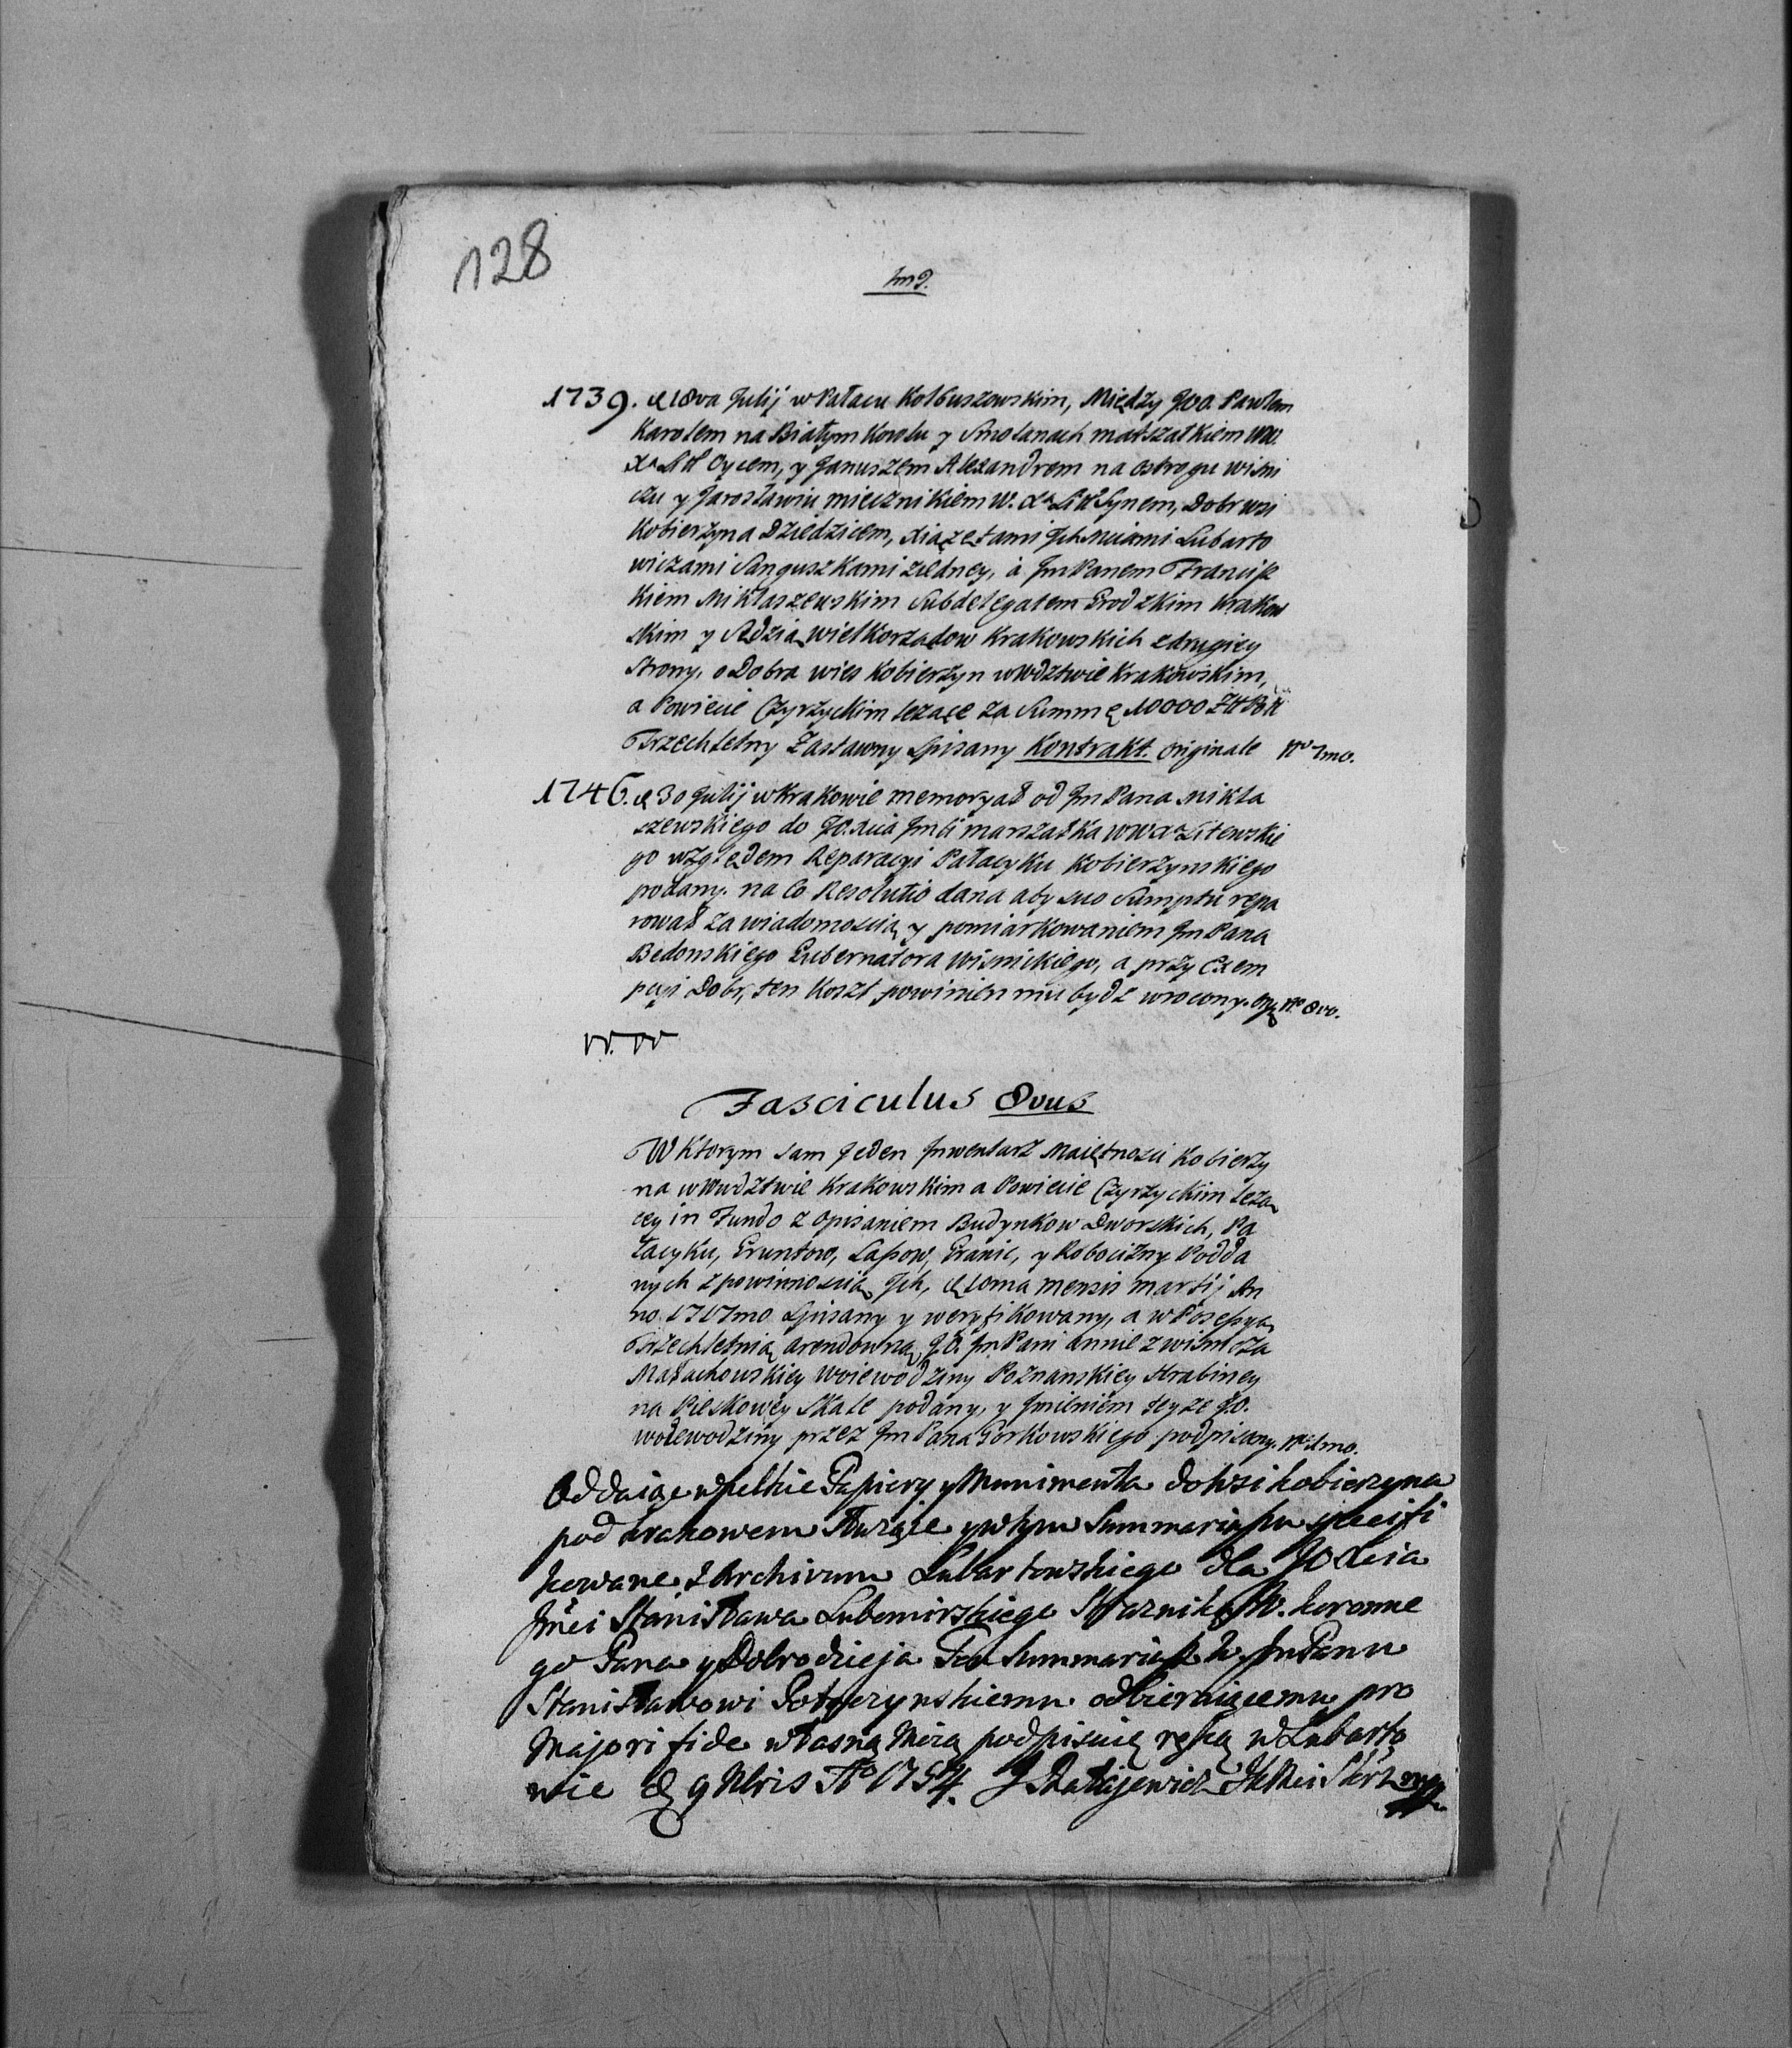 128
1739. d 18va Julij w Pałacu Kolbuszowskim, Między JOO. Pawłem
Karolem na Białym Kowlu y Smolanach marszałkiem WW.
Xa Litt Oycem, y Januszem Alexandrem na Ostrogu wisni
czu y Jarosławiu miecznikiem W. Xa Litt Synem, Dobr wsi
Kobierzyna Dziedzicem, Xiązętami Ich Mciami Lubarto
wiczami Sanguszkami ziedney, à Jm Panem Francisz
kiem Miklaszewskim Subdelegatem Grodzkim Krakow
skim y Sędzią wielkorządow Krakowskich zdrugiey
Strony, o Dobra wies Kobierzyn w Wdztwie Krakowskim,
a Powiecie Czyrzyckim lezące za Summę 10000 Złt Pol
Trzechletny Zastawny Spisany Kontrakt. Originale No 7mo.
1746. d 30 Julij w Krakowie memoryał od Jm Pana Mikla
szewskiego do JO. Xcia Jmci marszałka WWXa Litewskie
go względem Reparacyi Pałacyku Kobierzynskiego
podany. na Co Resolutio dana aby suo Sumptu repa
rował za wiadomoscią y pomiarkowaniem Jm Pana
Bedonskiego Gubernatora Wisnickiego, a przy Exem
pcyi Dobr, ten Koszt powinien mu bydz wrocony. No 8vo.
Fasciculus 8vus
W Ktorym sam Jeden Inwentarz Maiętnosci Kobierzy
na w Wudztwie Krakowskim a Powiecie Czyrzyckim lezą
cey in Fundo z opisaniem Budynkow Dworskich, Pa
łacyku, Gruntow, Łapow, Granic, y Robocizny Podda
nych z powinnoscią Ich, d 10ma mensis martij An
no 1717mo Spisany y weryfikowany, a w Possessyą
Trzechletnią arendowną JO. Jm Pani Annie z wisnicza
Małachowskiey Woiewodziny Poznanskiey Hrabiney
na Pieskowey Skale podany, y Imieniem teyze JO.
woiewodziny przez Jm Pana Gorkowskiego podpisany. No 1mo.
Oddaiąc wszelkie Papiery y Munimenta do Wsi Kobierzyna
pod Krakowem służące y w tym Summariuszu specifi
kowane z Archivum Lubartowskiego dla JO Xcia
Jmci Stanisława Lubomirskiego Straznika W. Koronne
go Pana y Dobrodzieja Ten Summariusz W. Jm Panu
Stanisławowi odbieraiącemu pro
Majori fide własną Moią podpisuię ręką w Lubarto
wie d 9 Xbris Ao 1754.